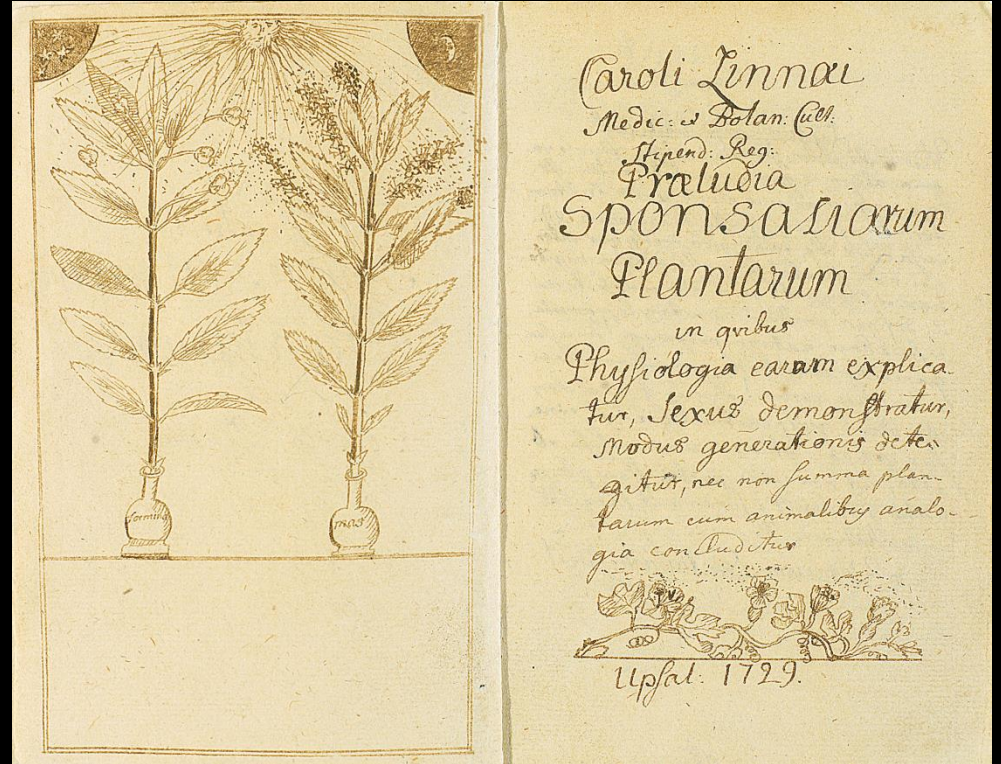 fœmina
mas
Caroli Linnæi
Medic: et Botan: Cult:
Stipend: Reg:
Præludia
Sponsaliarum
Plantarum
in qvibus
Physiologia earum explica-
tur, Sexus demonstratur,
Modus generationis dete-
gitur, nec non summa plan-
tarum cum animalibus analo-
gia concluditur
Upsal: 1729.